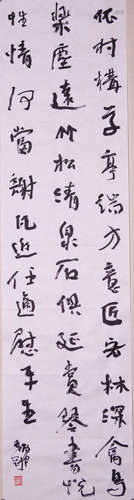 依村構草亭端方意匠宏林深禽鳥
樂塵遠竹松清泉石供延賞琴書悅
性情何當謝凡近任適慰平生